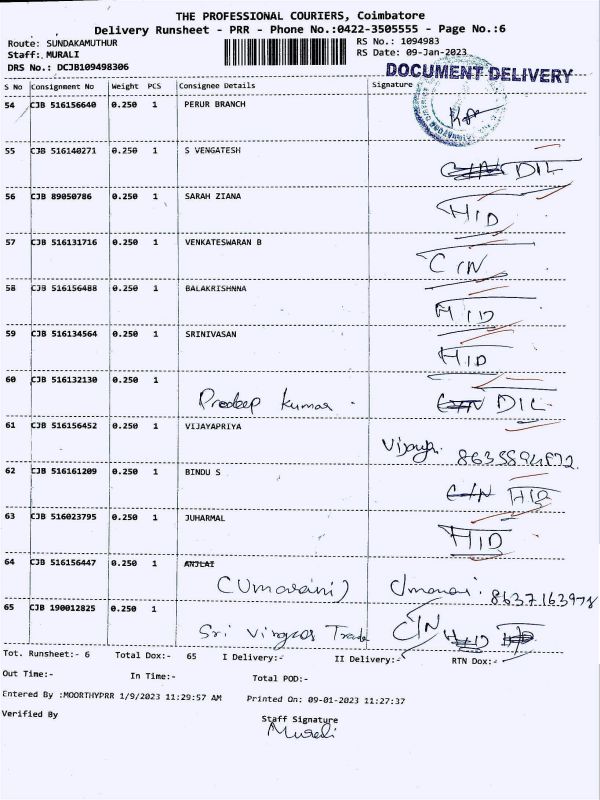 THE PROFESSIONAL COURIERS, Coimbatore
Delivery Runsheet - PRR - Phone No.:0422-3505555 - Page No.:6
Route: SUNDAKAMUTHUR RS No.: 1094983
Staff: MURALI RS Date: 09-Jan-2023
DRS No.: DCJB109498306 DOCUMENT DELIVERY
S No Consignment No Weight PCS Consignee Details Signature
54 CJB 516156640 0.250 1 PERUR BRANCH
55 CJB 516140271 0.250 1 S VENGATESH DIL
56 CJB 89050786 0.250 1 SARAH ZIANA HID
57 CJB 516131716 0.250 1 VENKATESWARAN B CIN
58 CJB 516156488 0.250 1 BALAKRISHNNA HID
59 CJB 516134564 0.250 1 SRINIVASAN HID
60 CJB 516132130 0.250 1 Pradeep Kumar. DIL
61 CJB 516156452 0.250 1 VIJAYAPRIYA
62 CJB 516161209 0.250 1 BINDU S CIN HID
63 CJB 516023795 0.250 1 JUHARMAL HID
64 CJB 516156447 0.250 1 ANJLAI
(Umarani) 8637163978
65 CJB 190012825 0.250 1 CIN
Sri HID
Tot. Runsheet:- 6 Total Dox:- 65 I Delivery:- II Delivery:- RTN Dox:-
Out Time:- In Time:- Total POD:-
Entered By :MOORTHYPRR 1/9/2023 11:29:57 AM Printed On: 09-01-2023 11:27:37
Verified By Staff Signature
Murali